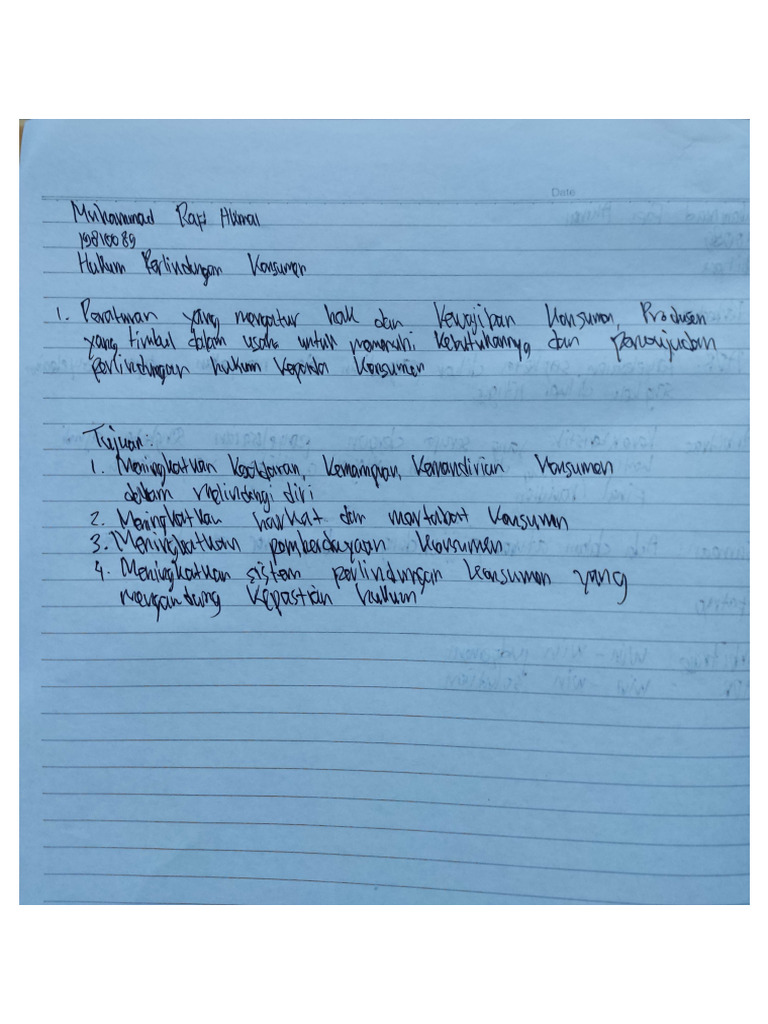 Date
Muhammad Rafi Akmal
19810089
Hukum Perlindungan Konsumen
1. Peraturan yang mengatur hak dan Kewajiban Konsumen, Produsen
yang timbul dalam usaha untuk memenuhi Kebutuhannya dan perwujudan
perlindungan hukum Kepada Konsumen
Tujuan :
1. Meningkatkan Kesadaran, Kemampuan, Kemandirian Konsumen
dalam melindungi diri
2. Meningkatkan harkat dan martabat Konsumen
3. Meningkatkan pemberdayaan Konsumen
4. Meningkatkan sistem perlindungan Konsumen yang
mengandung Kepastian hukum